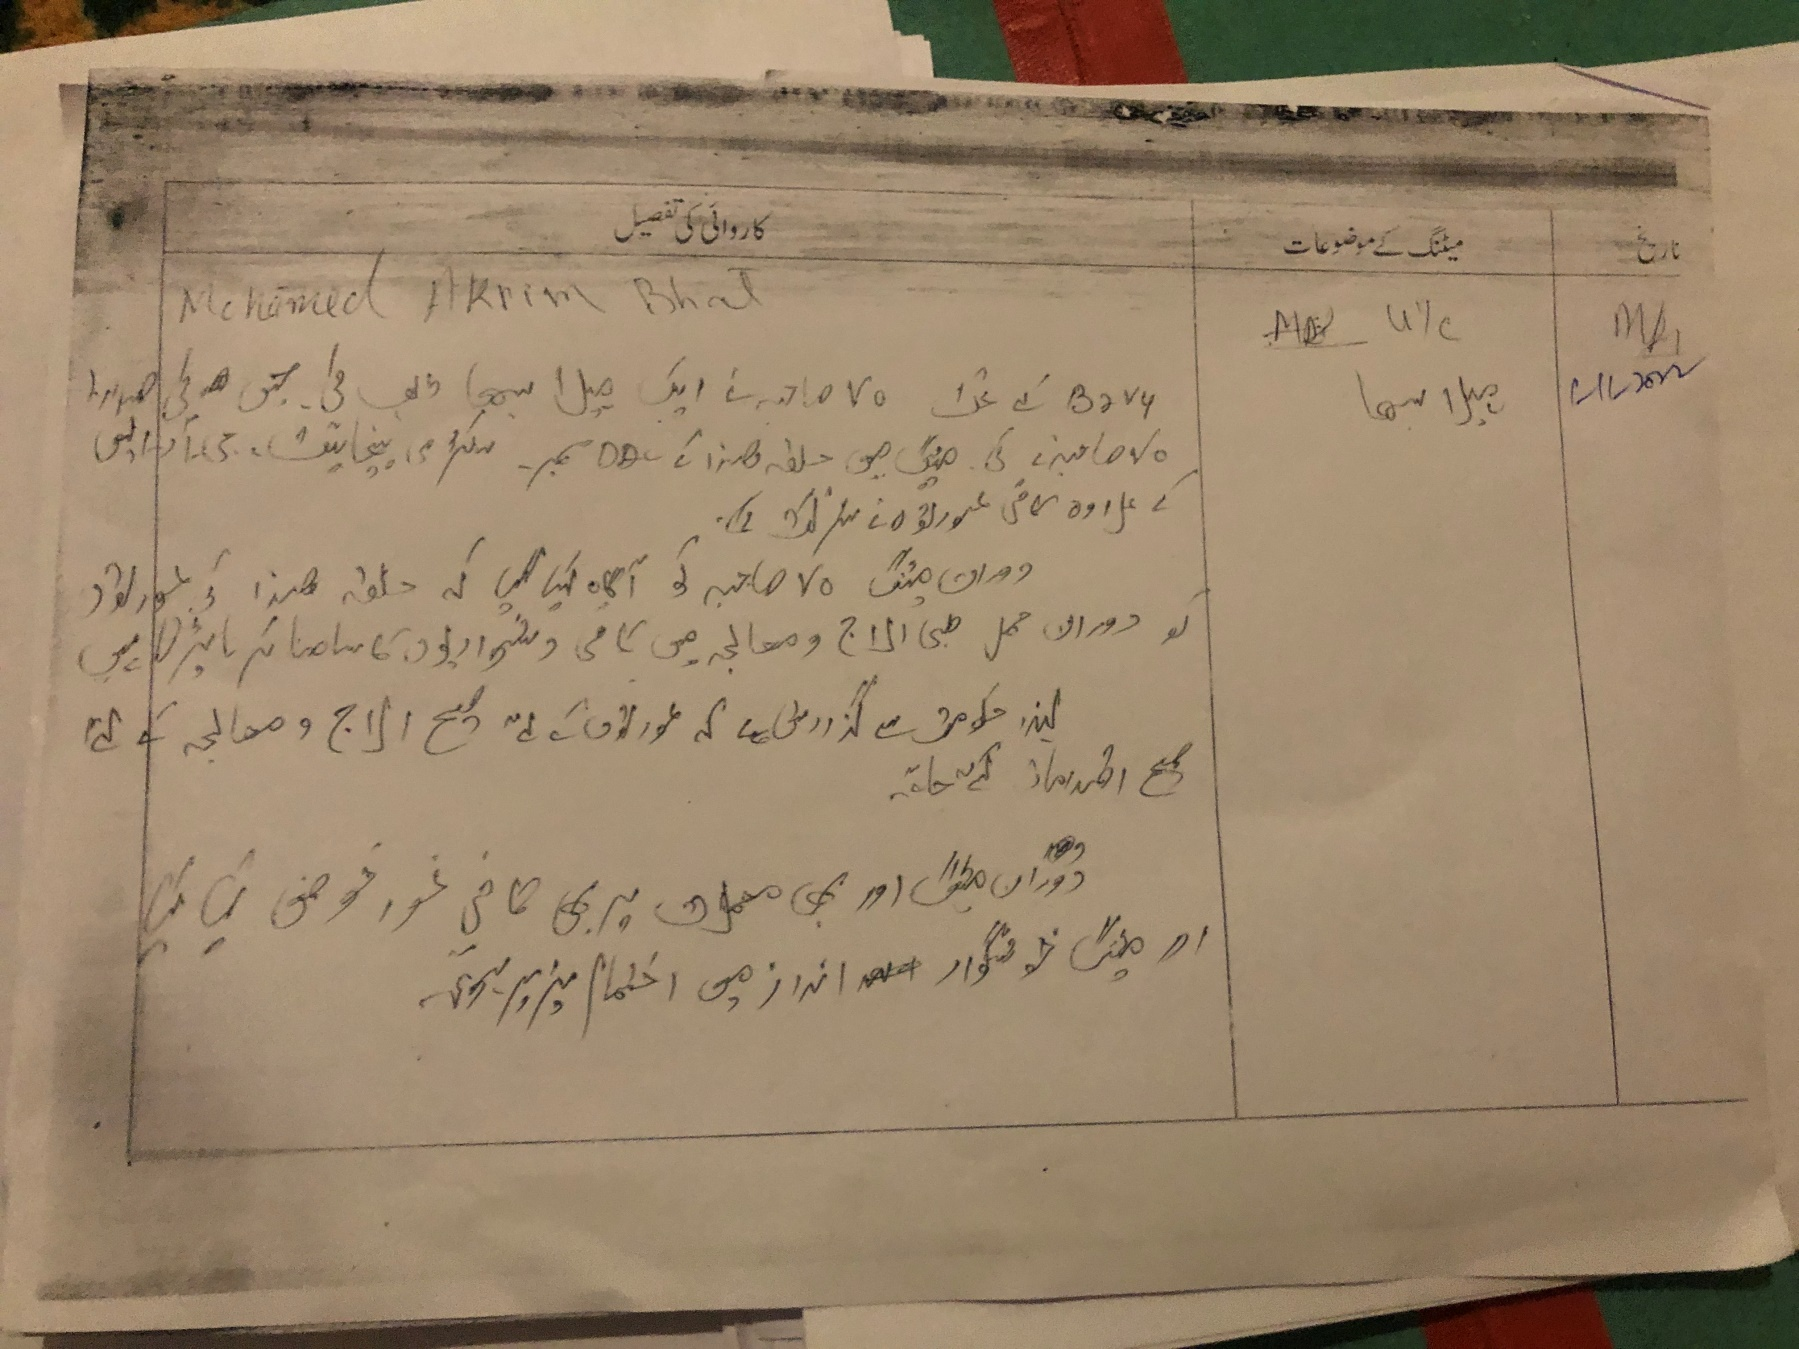 تاریخ
میٹنگ کے موضوعات
کاروائی کی تفصیل
Mohamed Akrim Bhat
مہیلا سبھا
B2V4 کے تحت VO صاحبہ نے ایک مہیلا سبھا طلب کی۔ جس کی
VO صاحبہ نے کی۔ میٹنگ میں حلقہ ھذا کے DDC ممبر۔ سکٹری پنچایت، جی۔آر۔ایس
کے علاوہ کافی عورتوں نے شرکت کی۔
دوران میٹنگ VO صاحبہ کو آگاہ کیا گیا کہ حلقہ ھذا کی عورتوں
کو دوران حمل طبی الاج و معالجہ میں کافی دشواریوں کا سامنا کرنا پڑتا ہیں
لہذا حکومت سے گذارش ہے کہ عورتوں کے لئے صحیح الاج و معالجہ کے لئے
صحیح اقدامات کئے جائے
دوران میٹنگ اور بھی معملات پر بھی کافی غور خوض کیا گیا
اور میٹنگ خوشگوار انداز میں اختمام پزیر ہوئی۔